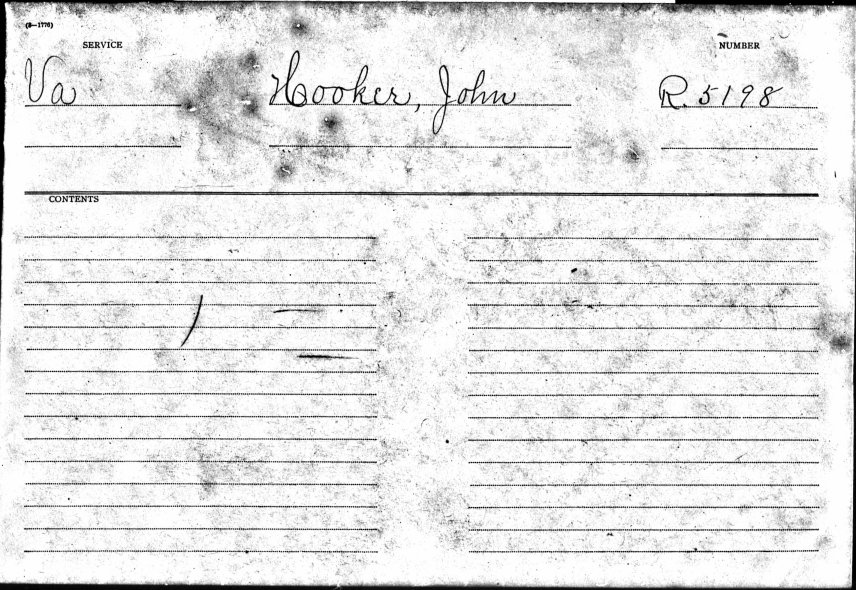 (3—1776)
SERVICE NUMBER
Va Hooker, John R. 5198
CONTENTS